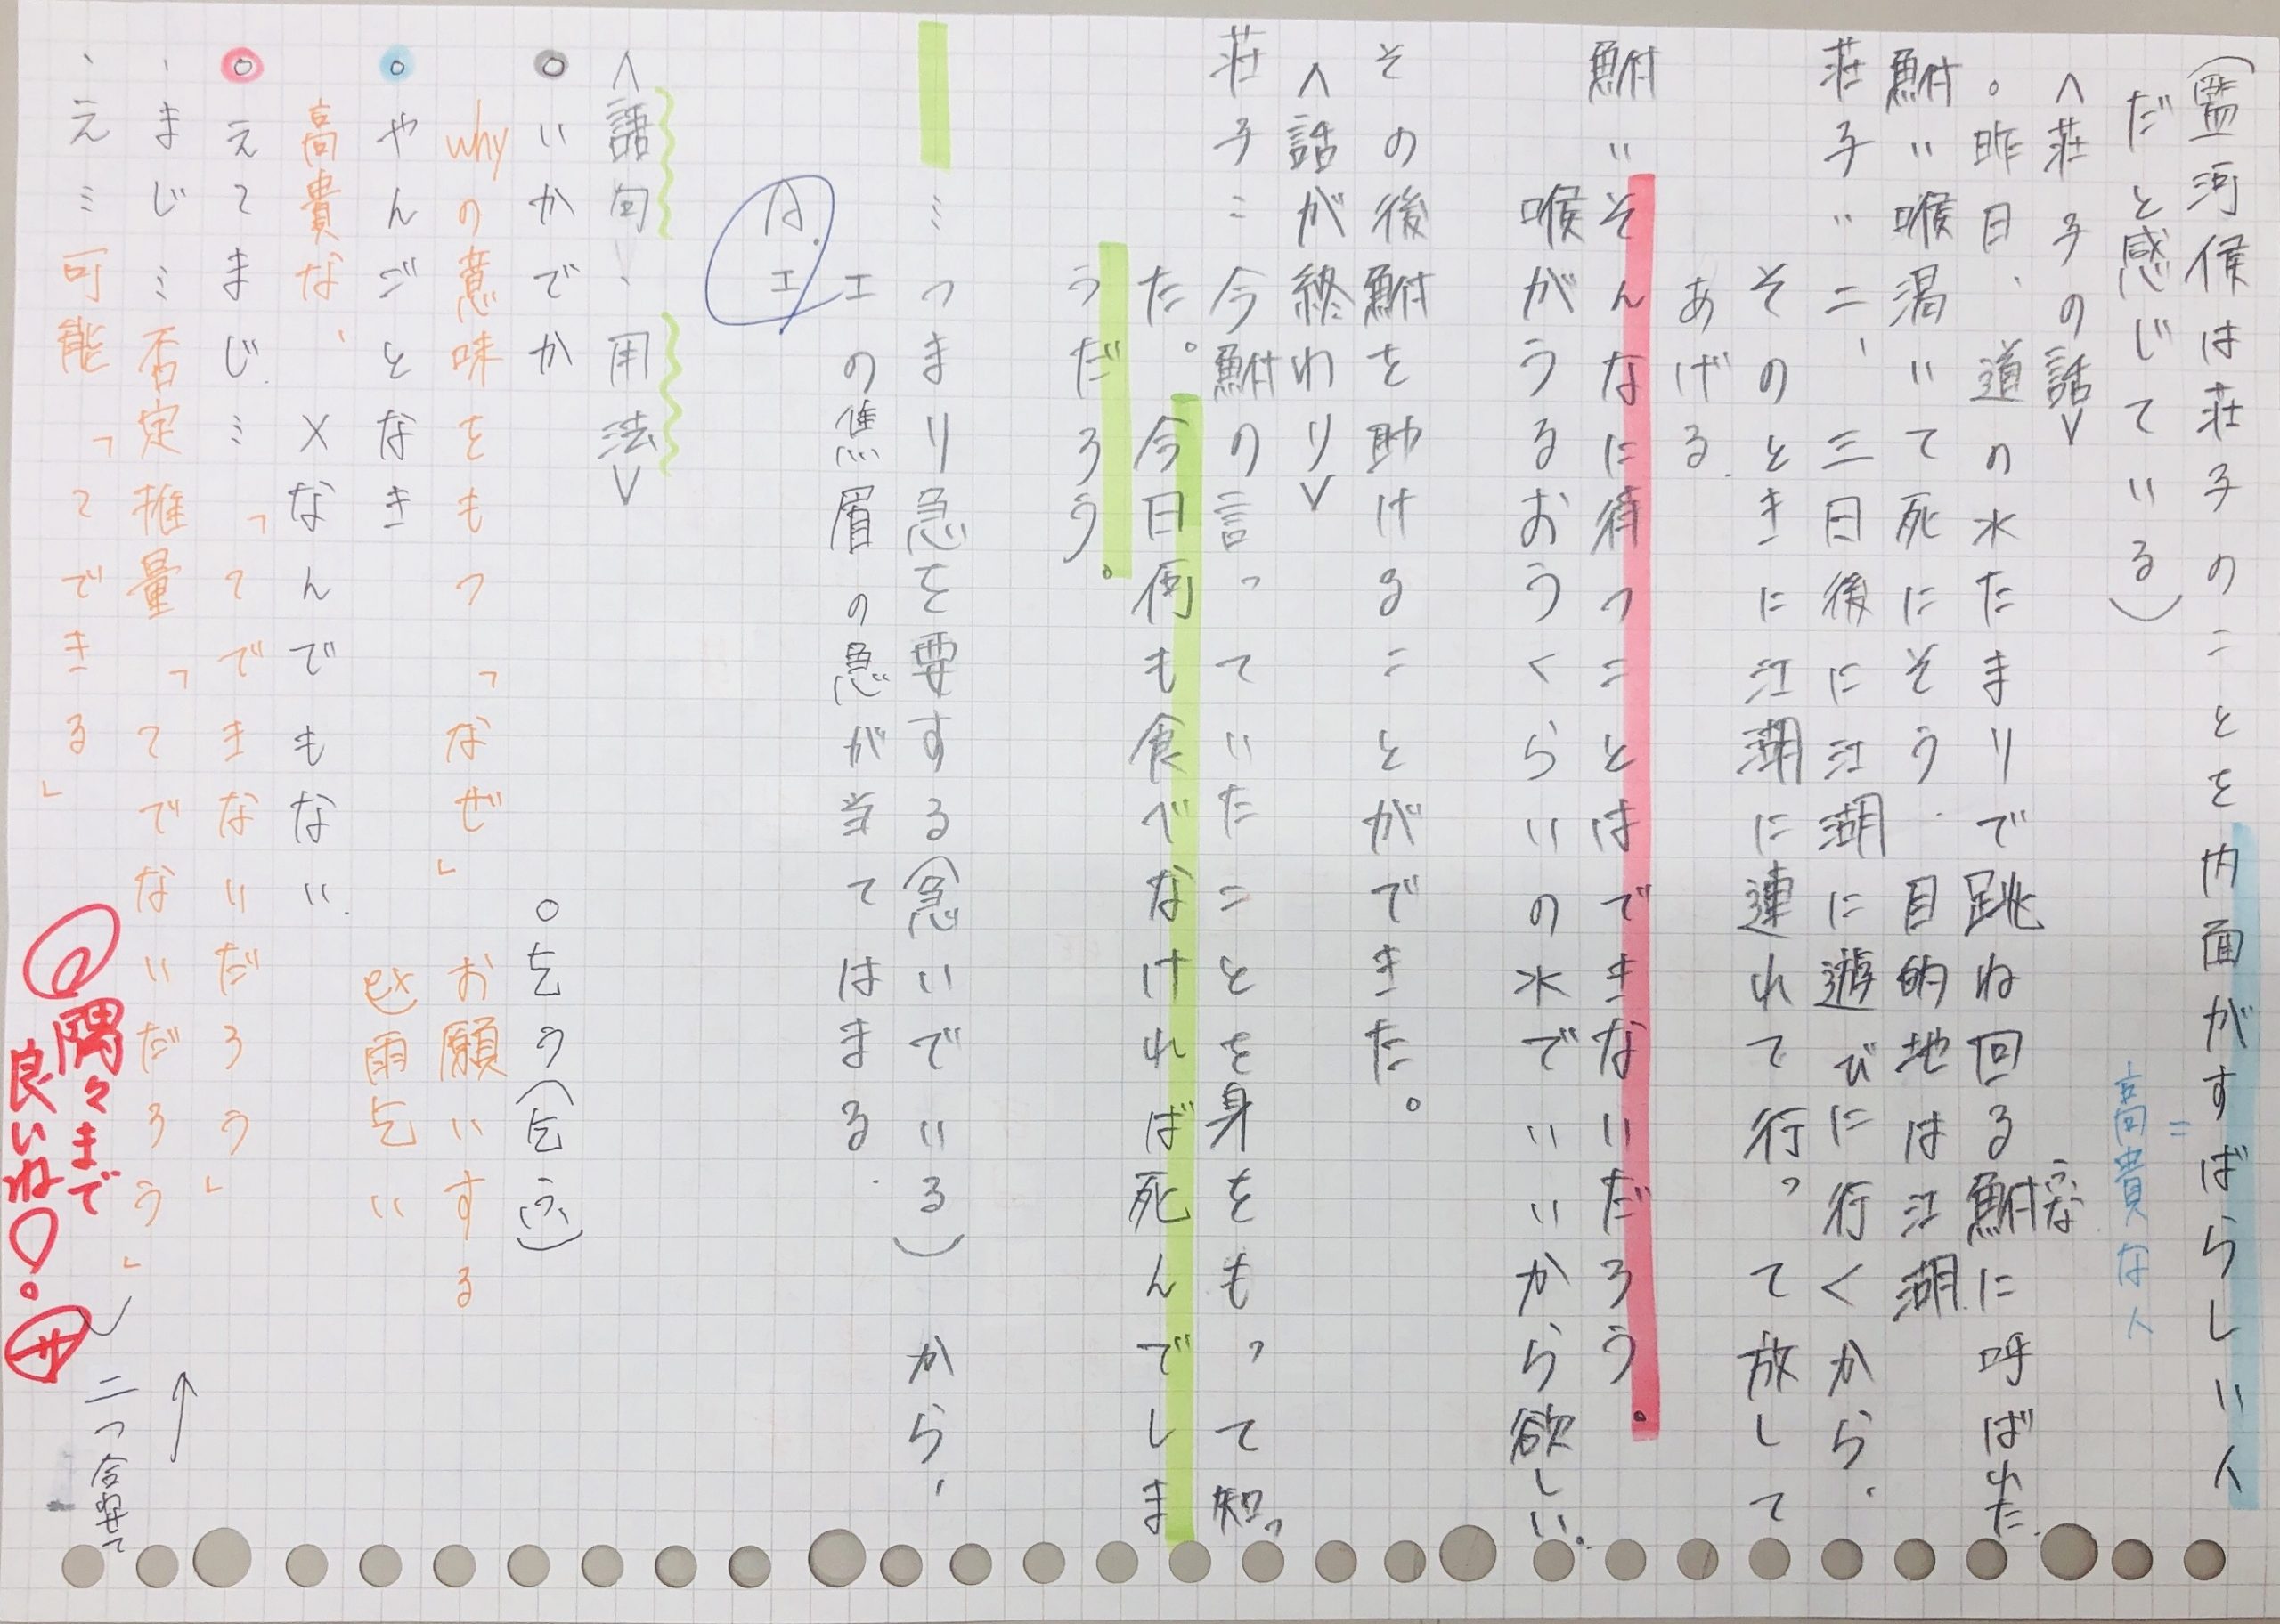 (監河候は荘子のことを内面がすばらしい人
=高貴な人
だと感じている)
<荘子の話>
。昨日、道の水たまりで跳ね回る鮒に呼ばれた.
ふな
鮒"喉渇いて死にそう. 目的地は江湖.
荘子"ニ、三日後に江湖に遊びに行くから、
そのときに江湖に連れて行って放して
あげる.
鮒"そんなに待つことはできないだろう。
喉がうるおうくらいの水でいいから欲しい.
その後鮒を助けることができた。
<話が終わり>
荘子=今鮒の言っていたことを身をもって知っ
た。今日何も食べなければ死んでしま
うだろう。
…つまり急を要する(急いでいる)から、
エの焦眉の急が当てはまる.
A.エ
<語句、用法>
いかでか 。乞う(乞ふ)
whyの意味をもつ「なぜ」 お願いする
やんごとなき ex)雨乞い
高貴な、 ×なんでもない.
えてまじ…「てできないだろう」
、まじ…否定推量「てでないだろう」
、え…可能「てできる」
↑二つ合わせて
隅々まで
良いね!
サ